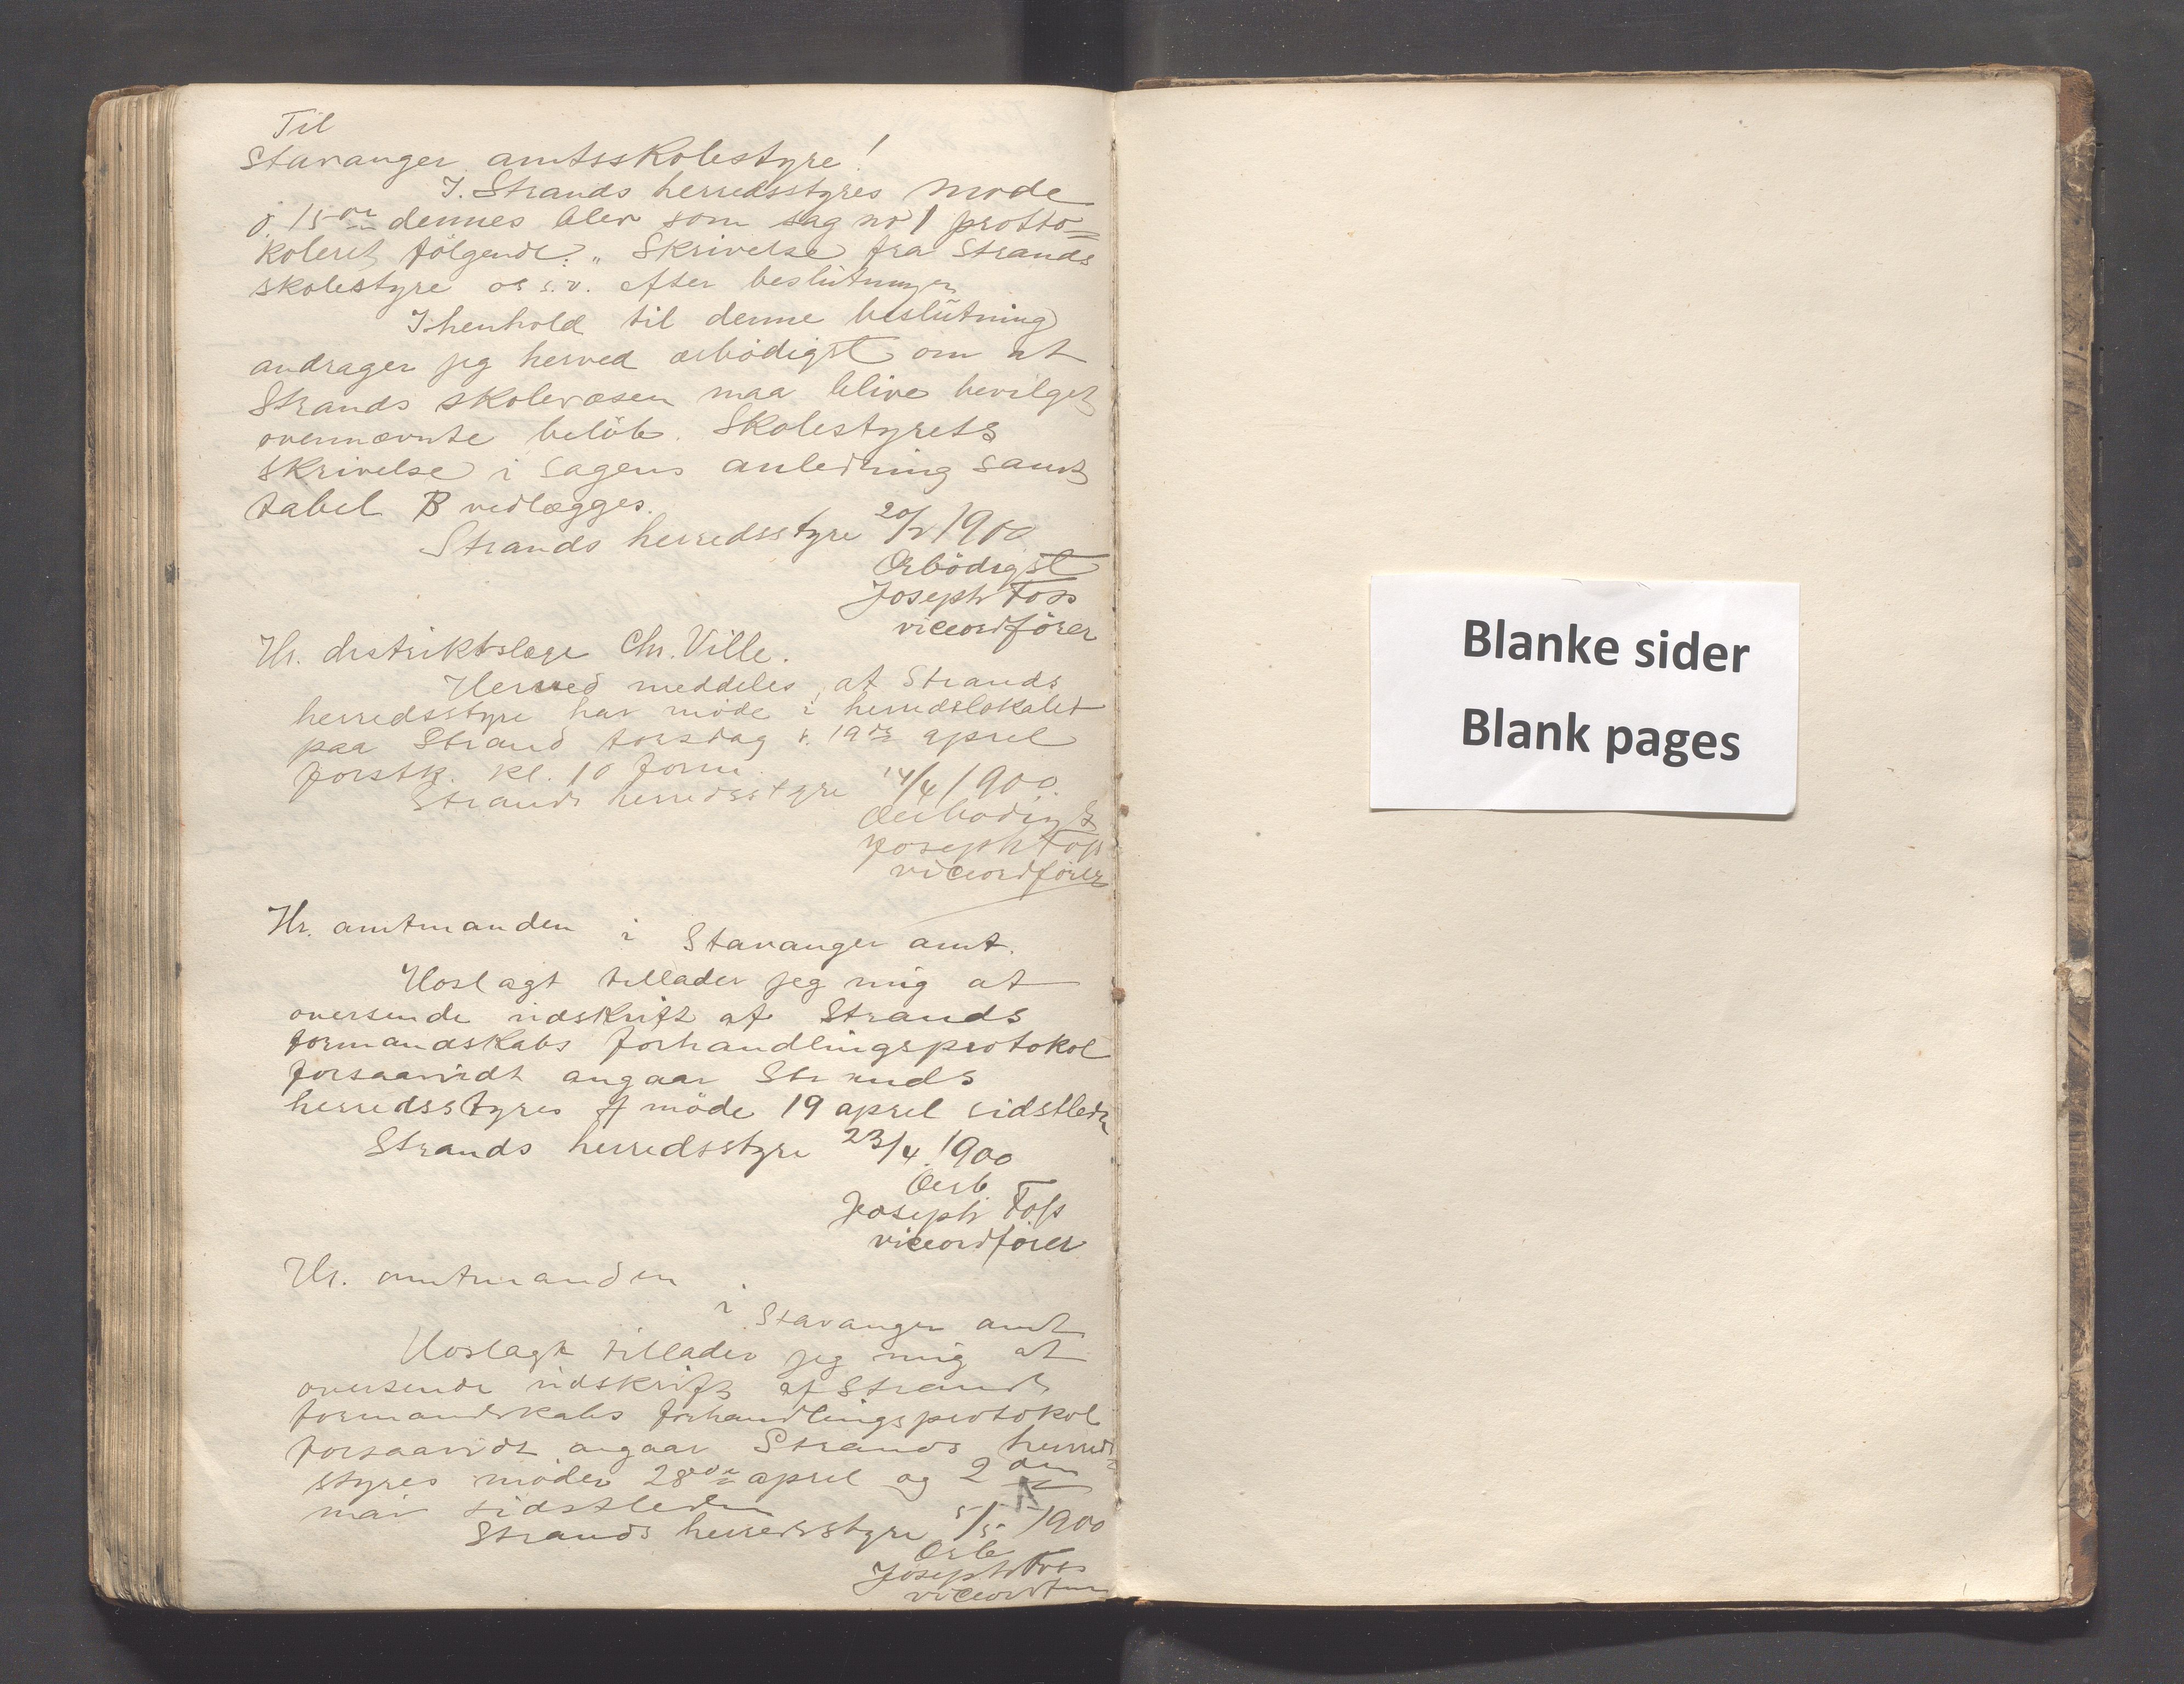 Til
Stavanger amtsskolestyre!
I. Strands herredsstyres møde
d. 15de dennes blev som sag no 1 protto=
koleret følgende: „ Skrivelse fra Strands
skolestyre os s. v. efter beslutningen
I henhold til denne beslutning
andrager jeg herved ærbødigst om at
Strands skolevæsen maa blive bevilget
ovennævnte beløb. Skolestyrets
skrivelse i sagens anledning samt
tabel B vedlægges.
Strands herredsstyre 20/2 1900
Ærbødigst
Joseph Foss
viceordfører
Hr. distriktslæge Chr. Ville.
Herved meddeles, at Strands
herredsstyre har møde i herredslokalet
paa Strand torsdag d. 19de april
førstk. kl. 10 form.
Strands herredsstyre 14/4 1900.
Ærbødigst
Joseph Foss
viceordfører
Hr. amtmanden i Stavanger amt.
Hoslagt tillader jeg mig at
oversende udskrift af Strands
formandskabs forhandlingsprotokol
forsaavidt angaar Strands
herredsstyres møde 19 april sidstleden
Strands herredsstyre 23/4 1900
Ærb.
Joseph Foss
viceordfører
Hr. amtmanden
i Stavanger amt
Hoslagt tillader jeg mig at
oversende udskrift af Strands
formandskabs forhandlingsprotokol
forsaavidt angaar Strands herreds=
styres møder 28de april og 2den
mai sidstleden
Strands herredsstyre 5/5 1900
Ærb
Joseph Foss
viceordfører
Blanke sider
Blank pages